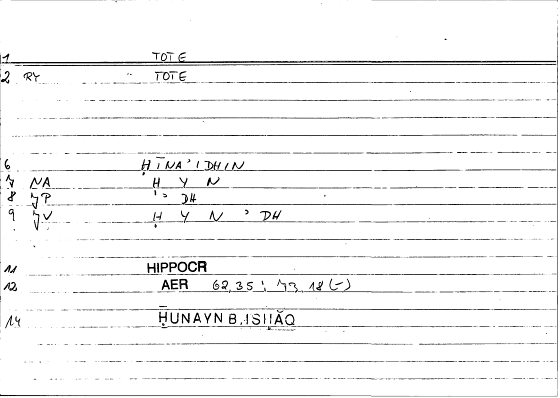 1 TOTE
2 RY TOTE
6 ḤĪNA'IDHIN
7 NA Ḥ Y N
8 JP ' DH
9 JV Ḥ Y N ' DH
11 HIPPOCR
12 AER 62,35 : 73,18 (-)
14 ḤUNAYN B. ISḤĀQ